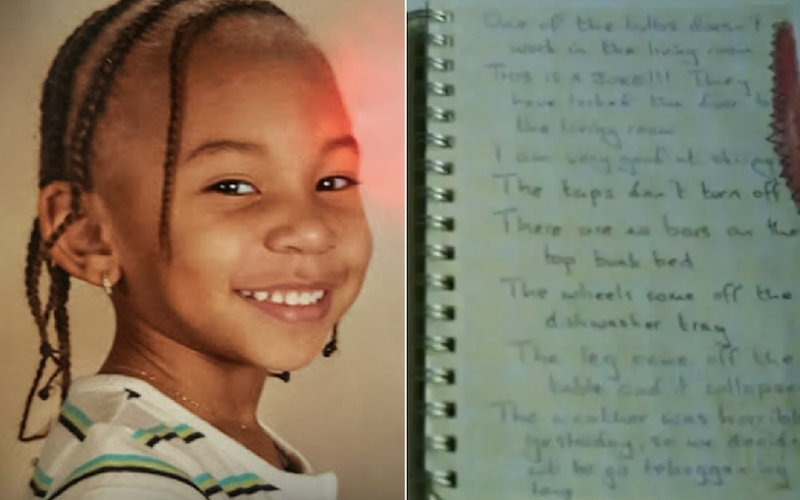 One of the bulbs doesn't
work in the living room
This is a They
have locked the door to
the living room
I am very good at
The taps don't turn off
There are no bars on the
top bunk bed
The wheels come off the
dishwasher tray
The leg came off the
table and it collapse
The weather was horribl
yesterday, so we decid
not to go